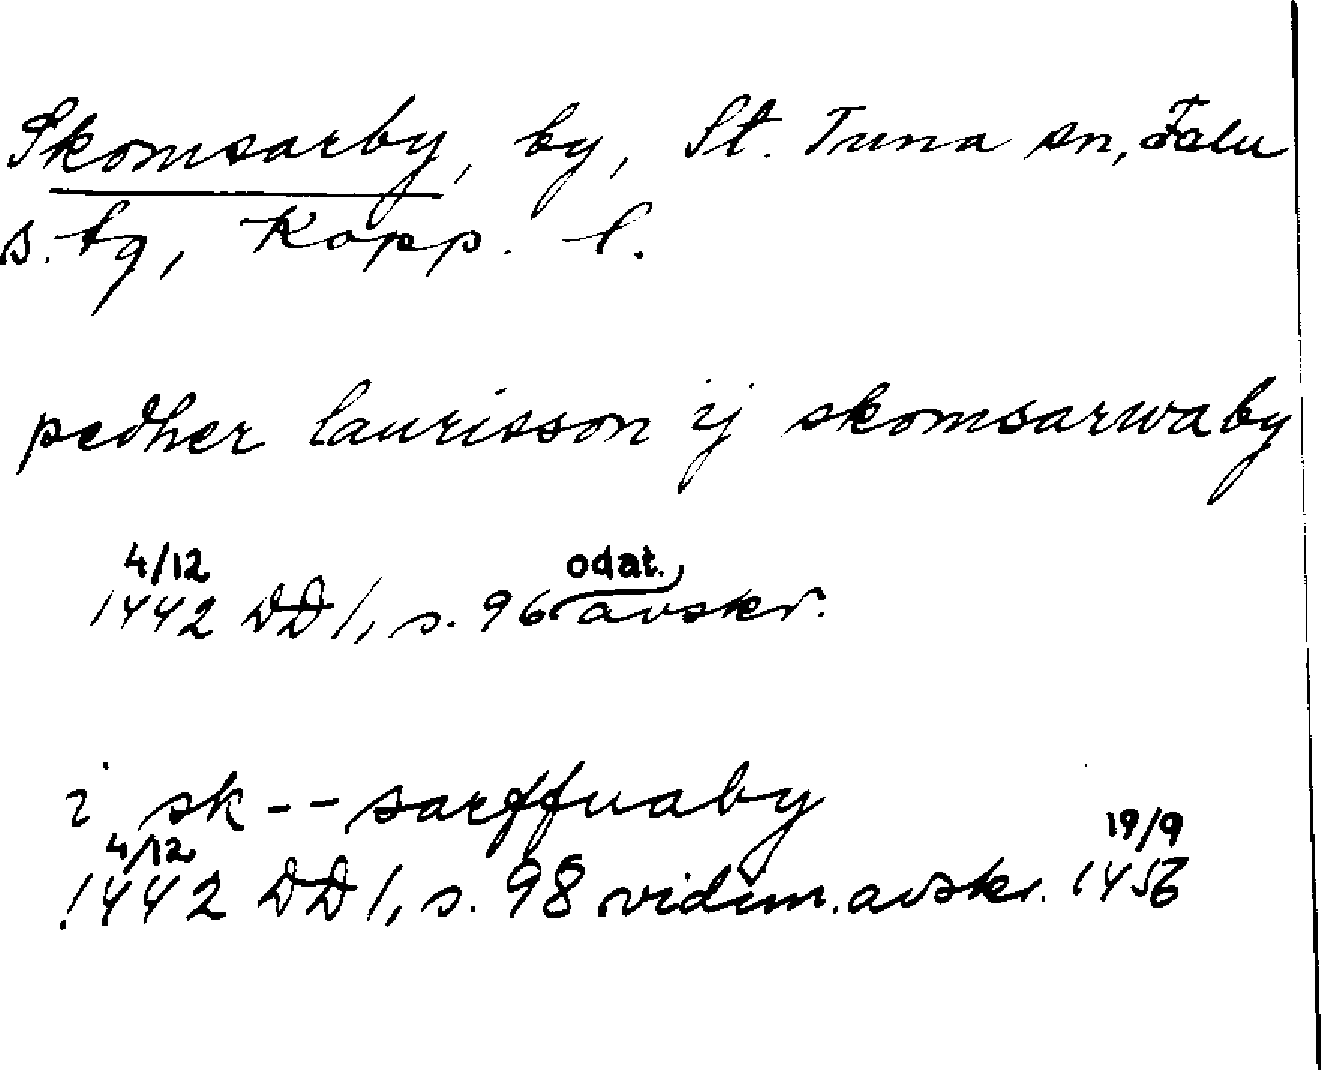 Skomsarby, by, St. Tuna sn, Falu
s. tg, Kopp. l.
pedher laurisson ij skomsarwaby
4/12 odat.
1442 DD 1, s. 96 avskr.
i sk--sarffuaby
4/12 19/9
1442 DD 1, s. 98 vidim. avskr. 1456